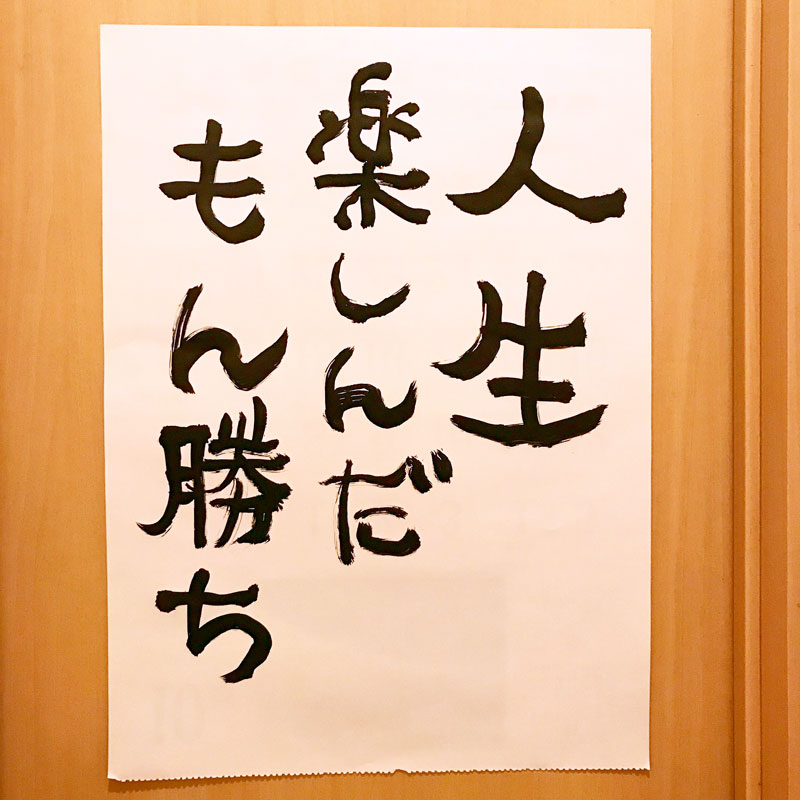 人生
楽しんだ
もん勝ち